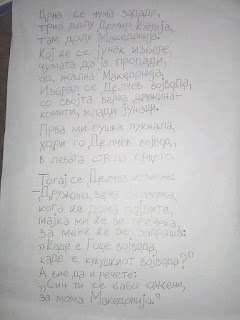 Црна се чума зададе,
трна долу Демир Капија,
там долу Македонија.
Кој ќе се јунак избере,
чумата да ја пропади,
од жална Македонија.
Изврал се Делчев војвода,
со својта верна дружина -
комити, млади јунаци.
Прва ми пушка пукнала,
удри го Делчев војвода,
в левата страна
Тогај се Делчев
- Дружино, верна
кога ќе дома појдите,
мајка ми ќе ве пречека,
за мене ќе ви запраша:
"Каде е Гоце војвода,
каде е кукушкиот војвода?"
А вие да и речете:
"Син ти се бабо ожени,
за мома Македонија."